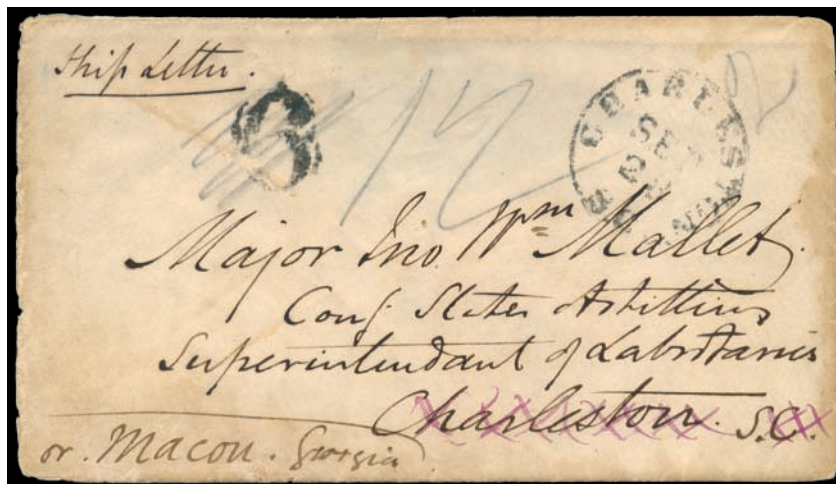 Ship Letter.
6 12 2
CHARLESTON
SEP
Major Jno. Wm Mallet,
Conf States Artillery
Superintendant of Labratories
Charleston. S.C.
or. Macon. Georgia